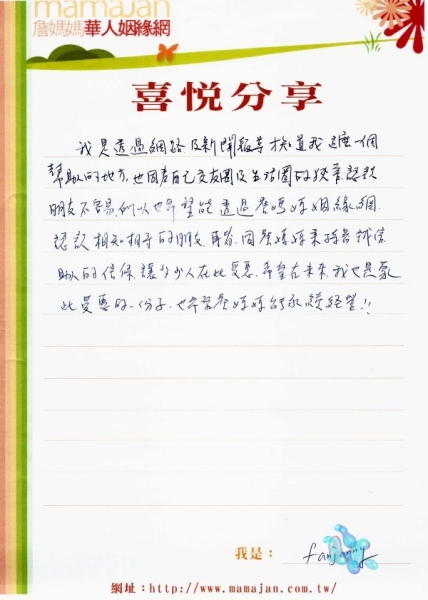 mamajan
詹媽媽華人姻緣網
喜悅分享
我是透過網路及新聞報導才知道有這麼一個
幫助的地方,也因為自己交友圈及生活圈的狹窄認識
朋友不容易,所以也希望能透過詹媽媽姻緣網
認識相知相守的朋友,再者,因詹媽媽秉持著誠信
助人的信條,讓不少人在此受惠,希望在未來,我也是
此受惠的一份子,也希望詹媽媽能永續經營!!
我是: fanjanny
網址:http://www.mamajan.com.tw/